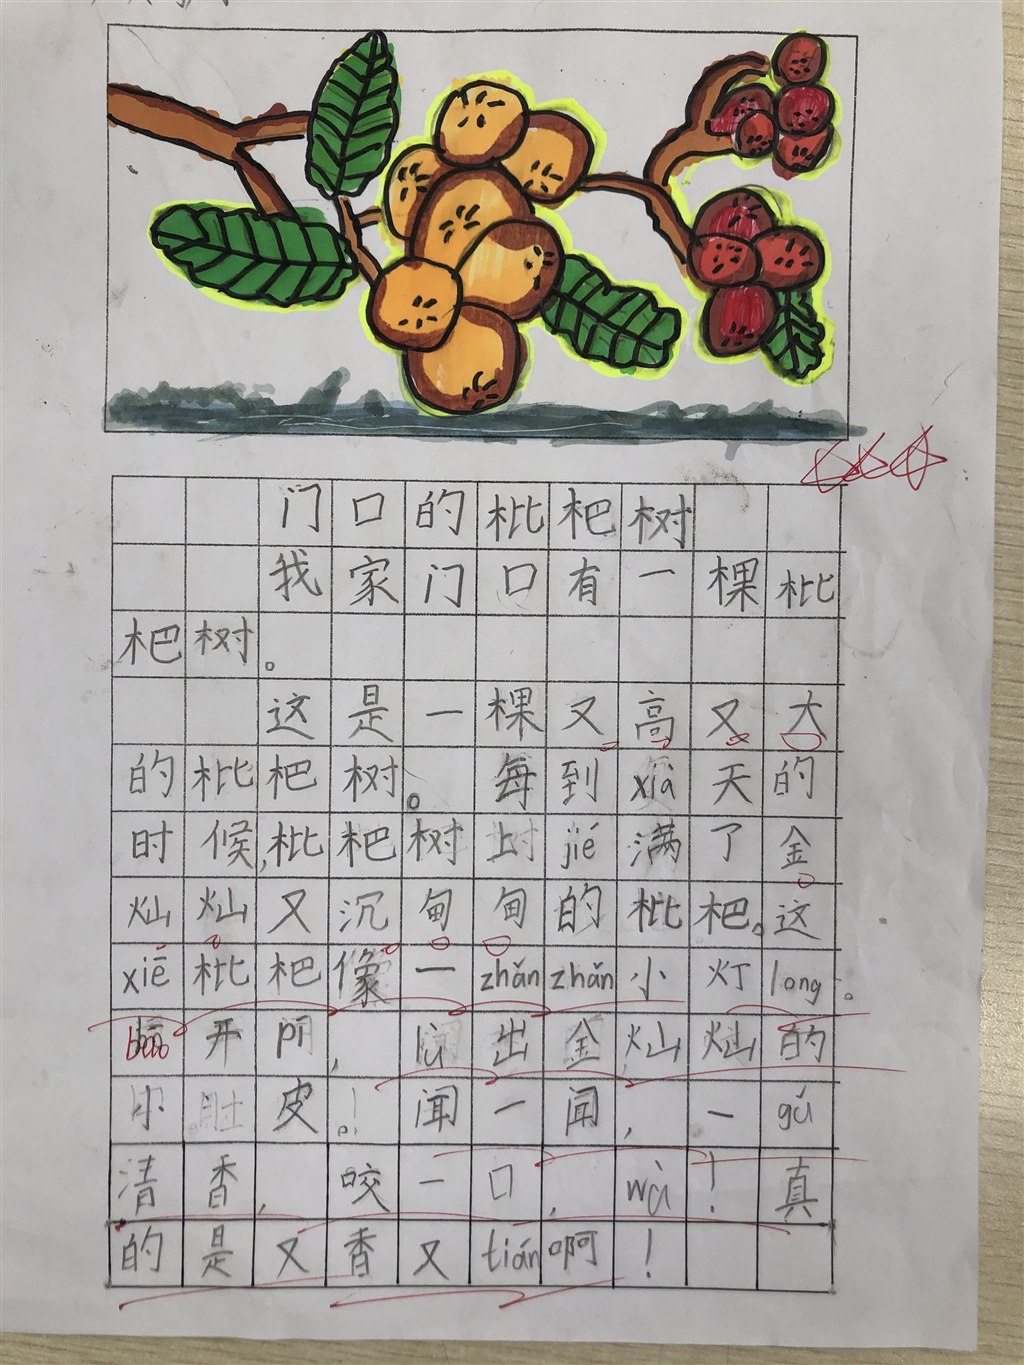 门口的枇杷树
我家门口有一棵枇
杷树。
这是一棵又高又大
的枇杷树。每到xià天的
时候,枇杷树上jié满了金
灿灿又沉甸甸的枇杷。这
xiē枇杷像一zhǎnzhǎn小灯long。
bāo开pí,lù出金灿灿的
小肚皮。闻一闻,一gú
清香,咬一口,wà!真
的是又香又tián啊!